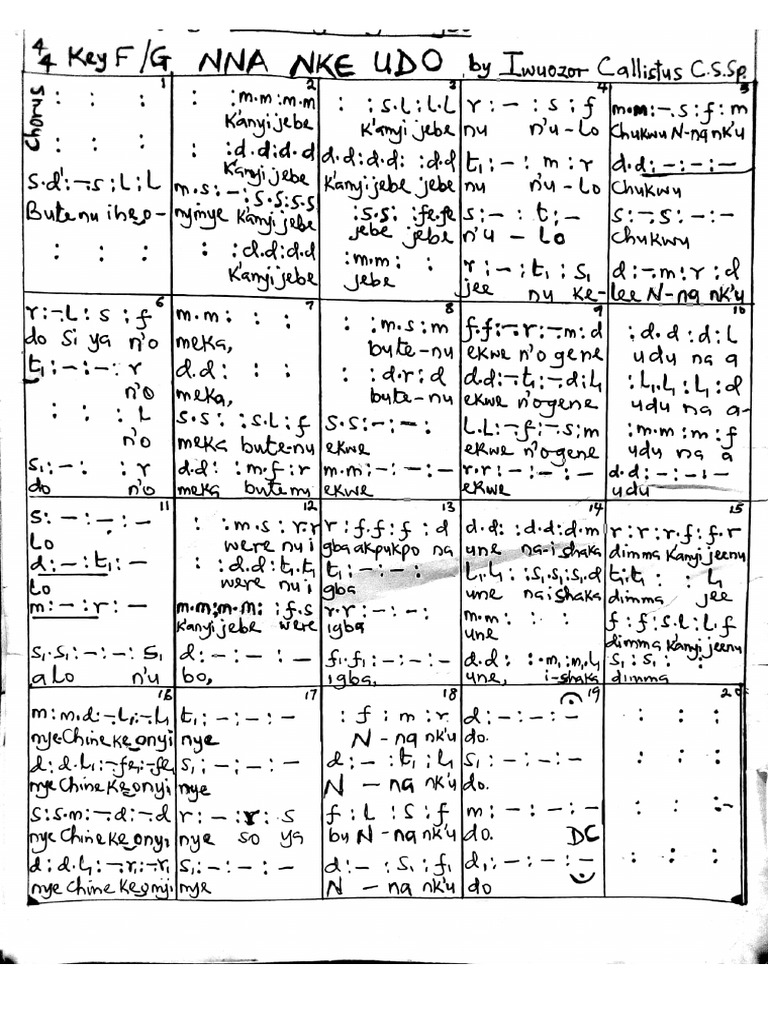 4/4 Key F/G NNA NKE UDO by Iwuozor Callistus C.S.Sp.
Chorus
1
: : :
: : :
s.d':-.s:L:L
Bute nu ihe o-
: : :
2
: :m.m:m.m
K'anyi jebe
: :d.d:d.d
K'anyi jebe
m.s:-:s.s:s.s
nyinye K'anyi jebe
: :d.d:d.d
K'anyi jebe
3
: :s.L:L.L
K'anyi jebe
d.d:d.d: :d.d
K'anyi jebe jebe
:s.s: :fe.fe
jebe jebe
:m.m: :
jebe
4
r:-:s:f
nu n'u-lo
t₁:-:m:r
nu n'u-lo
s:-:t:-
n'u-lo
r:-:t₁:s₁
jee nu ke-
5
m.m:-.s:f:m
Chukwu N-na nk'u
d.d:-:-:-
Chukwu
s:-.s:-:-
Chukwu
d:-.m:r:d
lee N-na nk'u
6
r:-.L:s:f
do Si ya n'o
t₁:-:-:r
n'o
: : :L
n'o
s₁:-: :r
do n'o
7
m.m: : :
meka,
d.d: : :
meka,
s.s: :s.L:f
meka bute-nu
d.d: :m.f:r
meka bute nu
8
: :m.s:m
bute-nu
: :d.r:d
bute-nu
s.s:-:-:
ekwe
m.m:-:-:-
ekwe
9
f.f:-.r:-.m:d
ekwe n'ogene
d.d:-.t₁:-.d:L₁
ekwe n'ogene
L.L:-.f:-.s:m
ekwe n'ogene
r.r:-:-:-
ekwe
10
:d.d:d:L
udu na a
:L₁.L₁:L₁:d
udu na a-
:m.m:m:f
udu na a
d.d:-:-:-
udu
11
s:-:-:-
Lo
d:-:t₁:-
Lo
m:-:r:-
s₁.s₁:-:-:s₁
a lo n'u
12
: :m.s:r.r
were nu i
: :d.d:t₁.t₁
were nu i
m.m:m.m: :f.s
K'anyi jebe were
d:-:-:-
bo,
13
r:f.f:f:d
gba akpukpo na
t₁:-:-:
gba
r.r:-:-:
igba
f₁.f₁:-:-:
igba,
14
d.d: :d.d:d.m
une na-i shaka
L₁.L₁: :s₁.s₁:s₁.d
une na i shaka
m.m: : :
une
d.d: :.m₁:m₁.L₁
une, i-shaka
15
r:r:r.f:f.r
dimma K'anyi jeenu
t₁:t₁: :L₁
dimma jee
f:f:s.L:L.f
dimma K'anyi jeenu
s₁:s₁: :
dimma
16
m:m.d:-.L₁:-.L₁
nye Chineke onyi
d:d.L₁:-.fe₁:-.fe₁
nye Chineke onyi
s:s.m:-.d:-.d
nye Chineke onyi
d:d.L₁:-.r₁:-.r₁
nye Chineke onyi
17
t₁:-:-:-
nye
s₁:-:-:-
nye
r:-:r:s
nye so ya
s₁:-:-:-
nye
18
:f:m:r
N-na nk'u
d:-:t₁:L₁
N-na nk'u
f:L:s:f
bu N-na nk'u
d:-:s₁:f₁
N-na nk'u
19
d:-:-:-
do.
s₁:-:-:-
do.
m:-:-:-
do. DC
d₁:-:-:-
do
20
: : :
: : :
: : :-
: : :